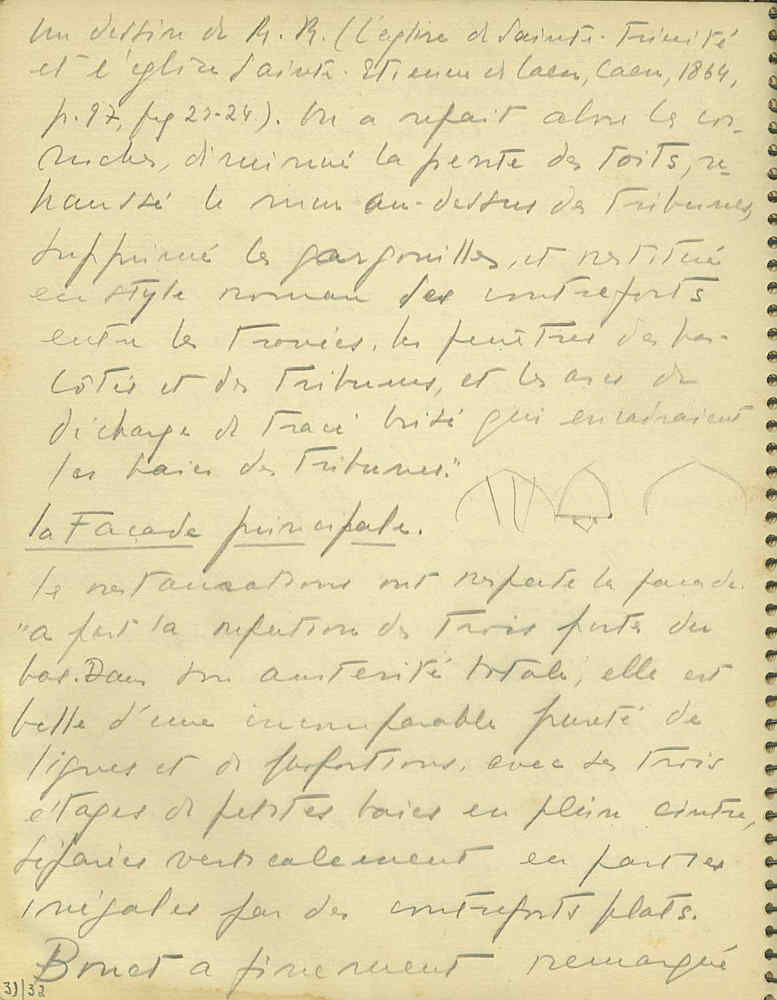 un dessin de R. R. (L'église de Sainte-Trinité
et l'église Sainte-Etienne de Caen, Caen, 1864,
p. 97, fig 23-24). On a refait alors les cor-
niches, diminué la pente des toits, re-
haussé le mur au-dessus des tribunes,
supprimé les gargouilles, et restitué
en style roman des contreforts
entre les travées, les fenêtres des bas-
côtés et des tribunes, et les arcs de
décharge de tracé brisé qui encadraient
les baies des tribunes."
La Façade principale.
Le restaurations ont respecté la façade
"a part la refection des trois portes du
bas. Dans son austerité totale, elle est
belle d'une incomparable pureté de
lignes et de proportions, avec ses trois
étages de petites baies en plein cintre,
séparées verticalement en parties
inégales par des contreforts plats.
Bouet a finement remarqué
31/32